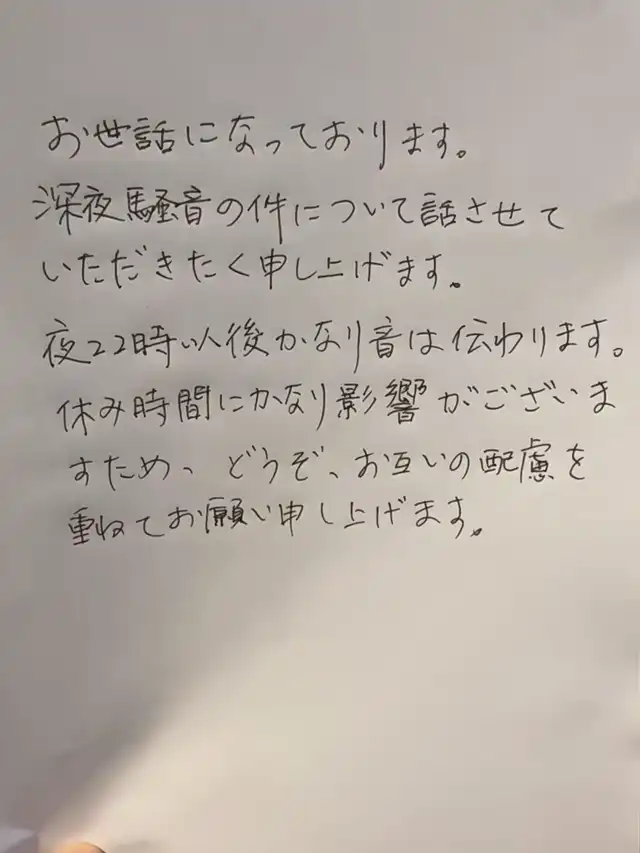 お世話になっております。
深夜騒音の件について話させて
いただきたく申し上げます。
夜22時以後かなり音は伝わります。
休み時間にかなり影響がございま
すため、どうぞ、お互いの配慮を
重ねてお願い申し上げます。